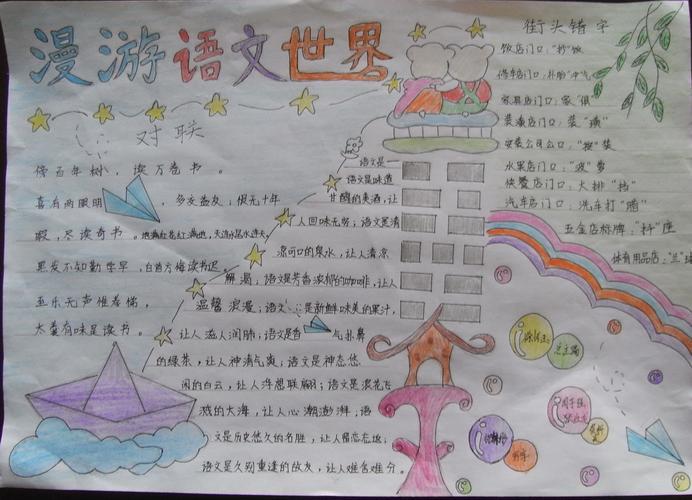 漫游语文世界
对联
傍百年树，读万卷书。
喜有两眼明，多交益友；恨无十年
暇，尽读奇书。
黑发不知勤学早，白首方悔读书迟。
至乐无声惟孝悌，
太羹有味是读书。
语文是一
语文是味道
甘醇的美酒，让
人回味无穷；语文是清
凉可口的泉水，让人清凉
解渴；语文是芳香浓郁的咖啡，让人
温馨浪漫；语文是新鲜味美的果汁，
让人滋人润肺；语文是香气扑鼻
的绿茶，让人神清气爽；语文是神态悠
闲的白云，让人浮想联翩；语文是浪花飞
溅的大海，让人心潮澎湃；语
文是历史悠久的名胜，让人留恋忘返；
语文是久别重逢的故友，让人难舍难分。
街头错字
饭店门口："抄"饭
修车店门口：补胎"冲"气
家具店门口：家"俱"
装潢店门口：装"璜"
安装公司门口："按"装
水果店门口："波"萝
快餐店门口：大排"挡"
汽车店门口：洗车打"腊"
五金店标牌："杆"座
体育用品店："兰"球